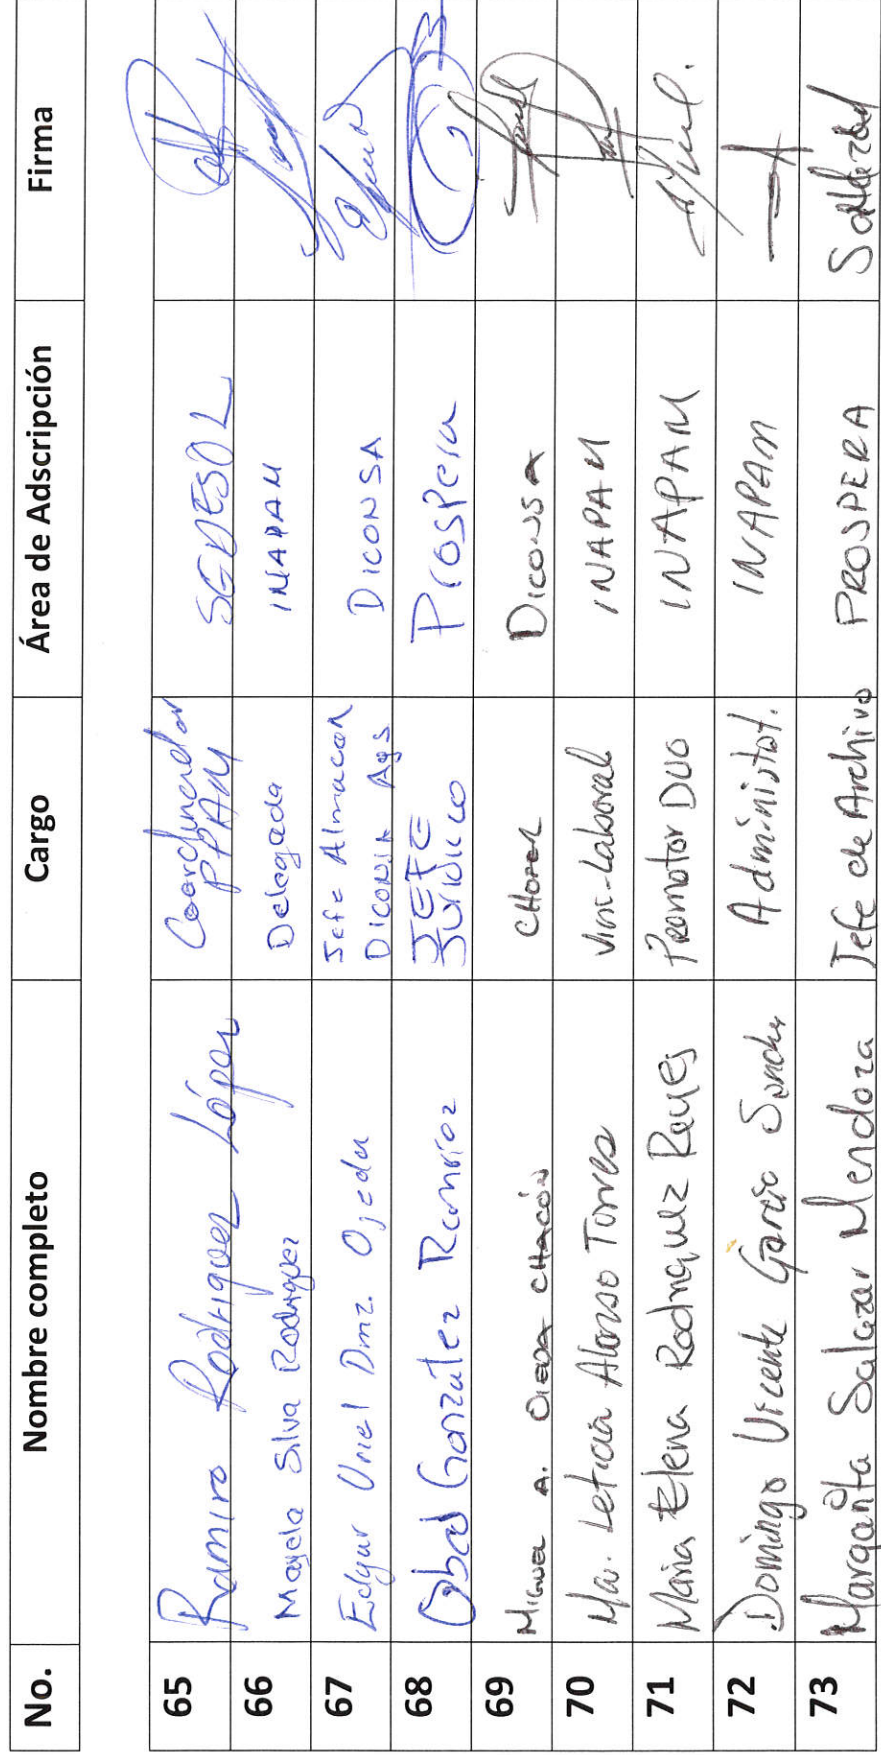 No. Nombre completo Cargo Área de Adscripción Firma
65 Ramiro Rodriguez López Coordinador PPAM SEDESOL
66 Mayela Silva Rodriguez Delegada INAPAM
67 Edgar Uriel Dmz. Ojeda Jefe Almacen Diconsa Ags DICONSA
68 Obed González Ramírez JEFE JURIDICO Prospera
69 MIGUEL A. OJEDA CHACÓN CHOFER DICONSA
70 Ma. Leticia Alonso Torres Vinc-Laboral INAPAM
71 Maria Elena Rodriguez Reyes Promotor DUO INAPAM
72 Domingo Vicente García Administrat. INAPAM
73 Margarita Salazar Mendoza Jefe de Archivo PROSPERA